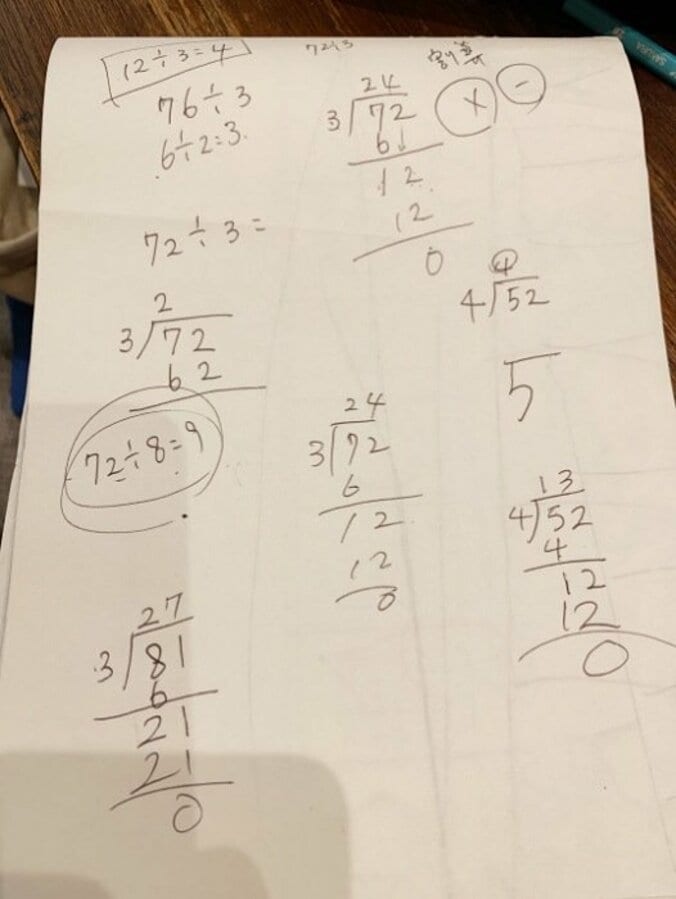 12÷3=4
76÷3
6÷2=3
72÷3=
2
3 72
62
72÷8=9
27
3 81
6
21
21
0
72÷3
24
3 72
6↓
12
12
0
24
3 72
6
12
12
0
割算
× −
4
4 52
5
13
4 52
4
12
12
0
SAKURA